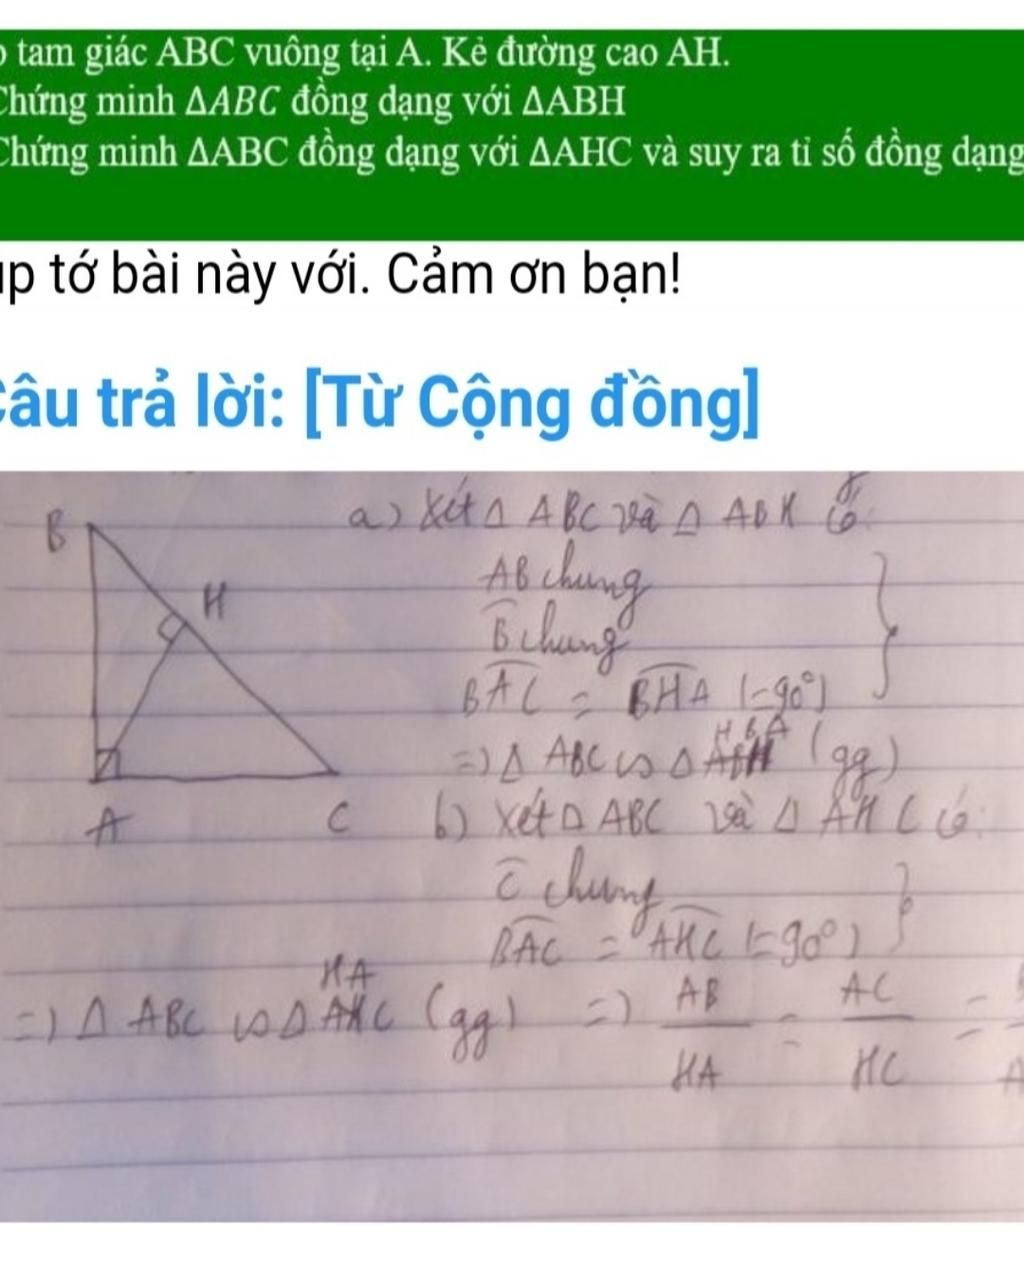 tam giác ABC vuông tại A. Kẻ đường cao AH.
Chứng minh ΔABC đồng dạng với ΔABH
Chứng minh ΔABC đồng dạng với ΔAHC và suy ra tỉ số đồng dạng
úp tớ bài này với. Cảm ơn bạn!
Câu trả lời: [Từ Cộng đồng]
B
H
A
C
a) Xét Δ ABC và Δ ABH có:
AB chung
B chung
BAC = BHA (=90°)
HBA
=) Δ ABC ∽ Δ (gg)
b) Xét Δ ABC và Δ AHC có:
C chung
BAC = AHC (=90°)
HA
=) Δ ABC ∽ Δ AHC (gg) =) AB/HA = AC/HC =